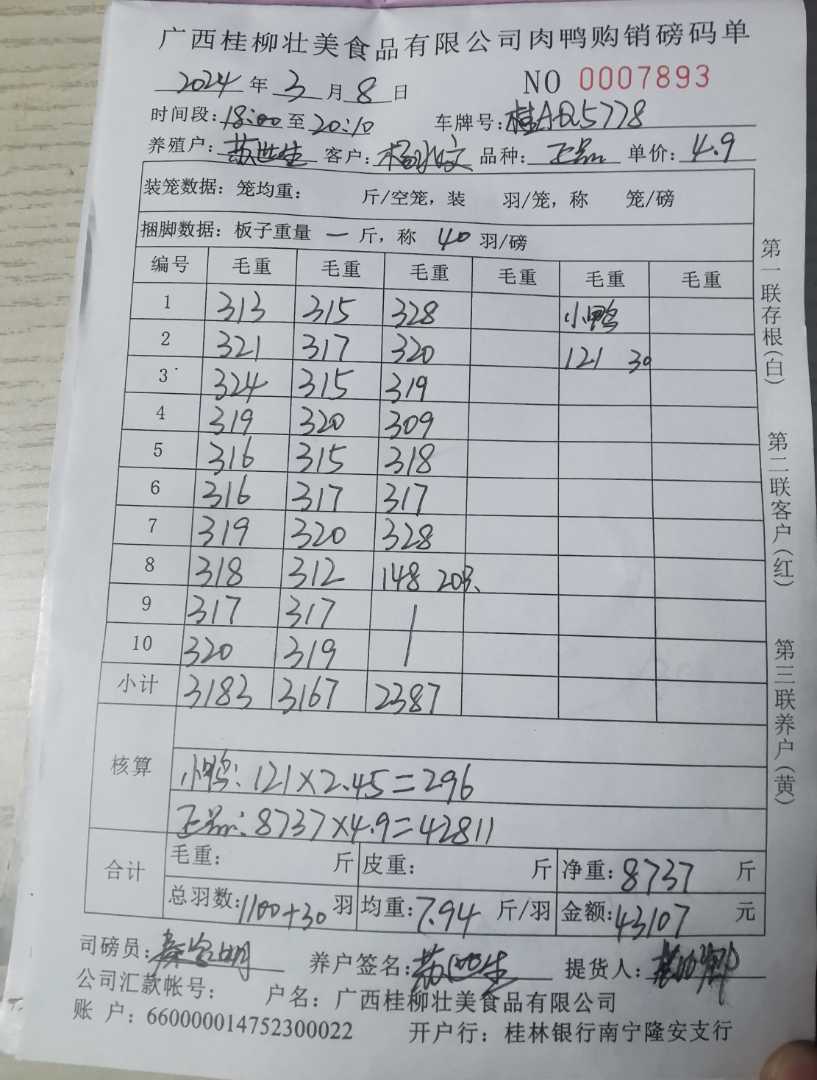 广西桂柳壮美食品有限公司肉鸭购销磅码单
2024年3月8日 NO 0007893
时间段:18:00至20:10 车牌号:桂A 5778
养殖户:苏世生 客户: 品种:正品 单价:4.9
装笼数据:笼均重: 斤/空笼,装 羽/笼,称 笼/磅
捆脚数据:板子重量 一 斤,称 40 羽/磅
编号 毛重 毛重 毛重 毛重 毛重 毛重
1 313 315 328 小鸭
2 321 317 320 121 30
3 324 315 319
4 319 320 309
5 316 315 318
6 316 317 317
7 319 320 328
8 318 312 148 20只
9 317 317
10 320 319
小计 3183 3167 2387
核算
小鸭:121×2.45=296
正品:8737×4.9=42811
合计 毛重: 斤 皮重: 斤 净重:8737 斤
总羽数:1100+30 羽 均重:7.94 斤/羽 金额:43107 元
司磅员: 养户签名:苏世生 提货人:
公司汇款帐号: 户名:广西桂柳壮美食品有限公司
账 户:660000014752300022 开户行:桂林银行南宁隆安支行
第一联存根(白) 第二联客户(红) 第三联养户(黄)